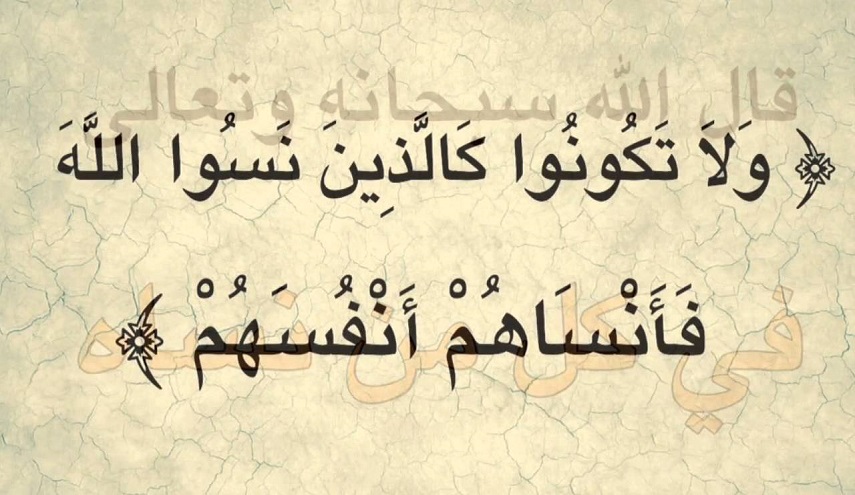 قال الله سبحانه وتعالى
﴿ وَلاَ تَكُونُوا كَالَّذِينَ نَسُوا اللَّهَ
فَأَنْسَاهُمْ أَنْفُسَهُمْ ﴾
في كل من نساه